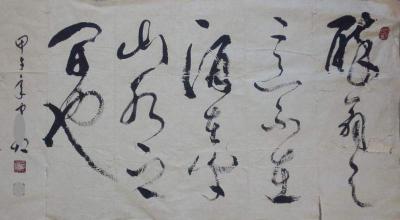 醉翁之
意不在
酒在乎
山水之
间也
甲子年